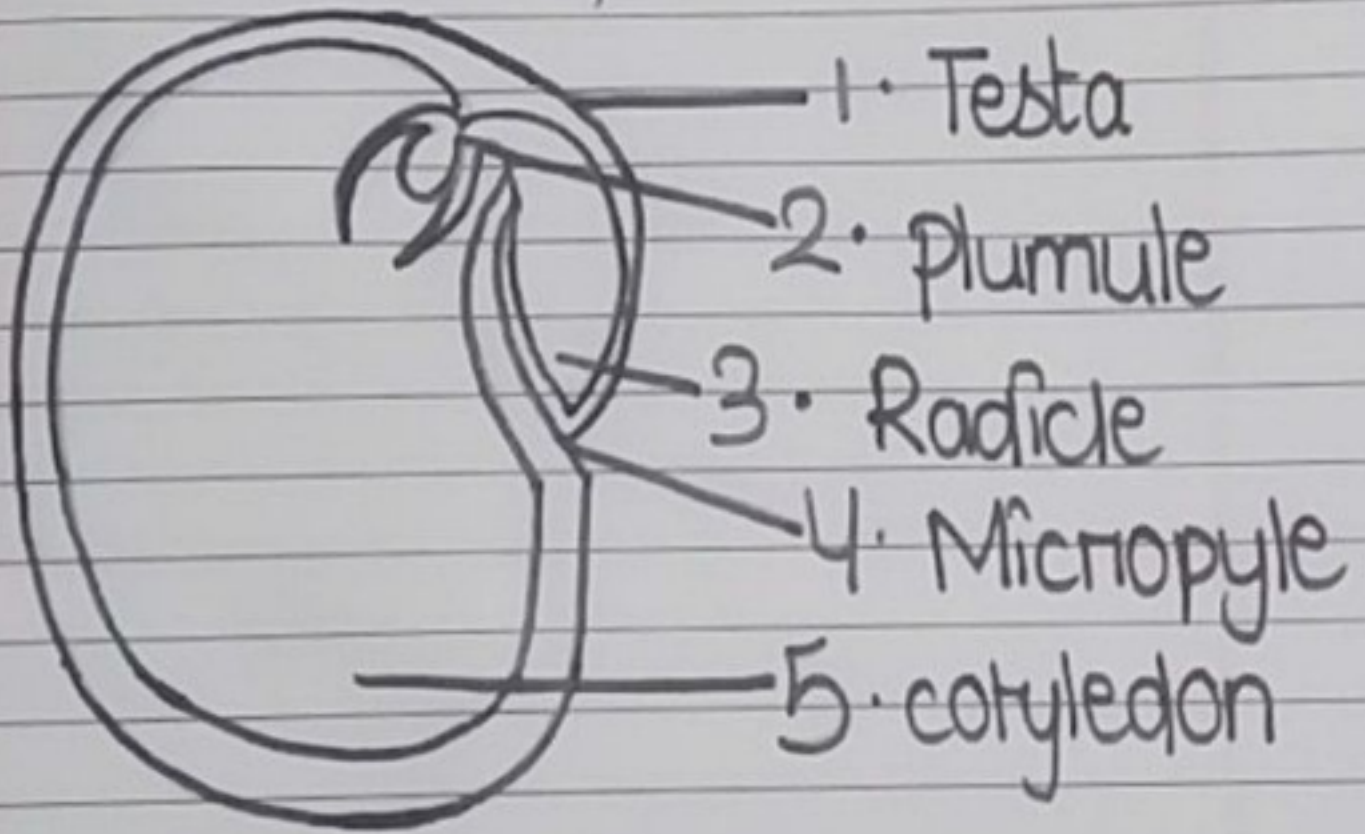 1. Testa
2. Plumule
3. Radicle
4. Micropyle
5. cotyledon